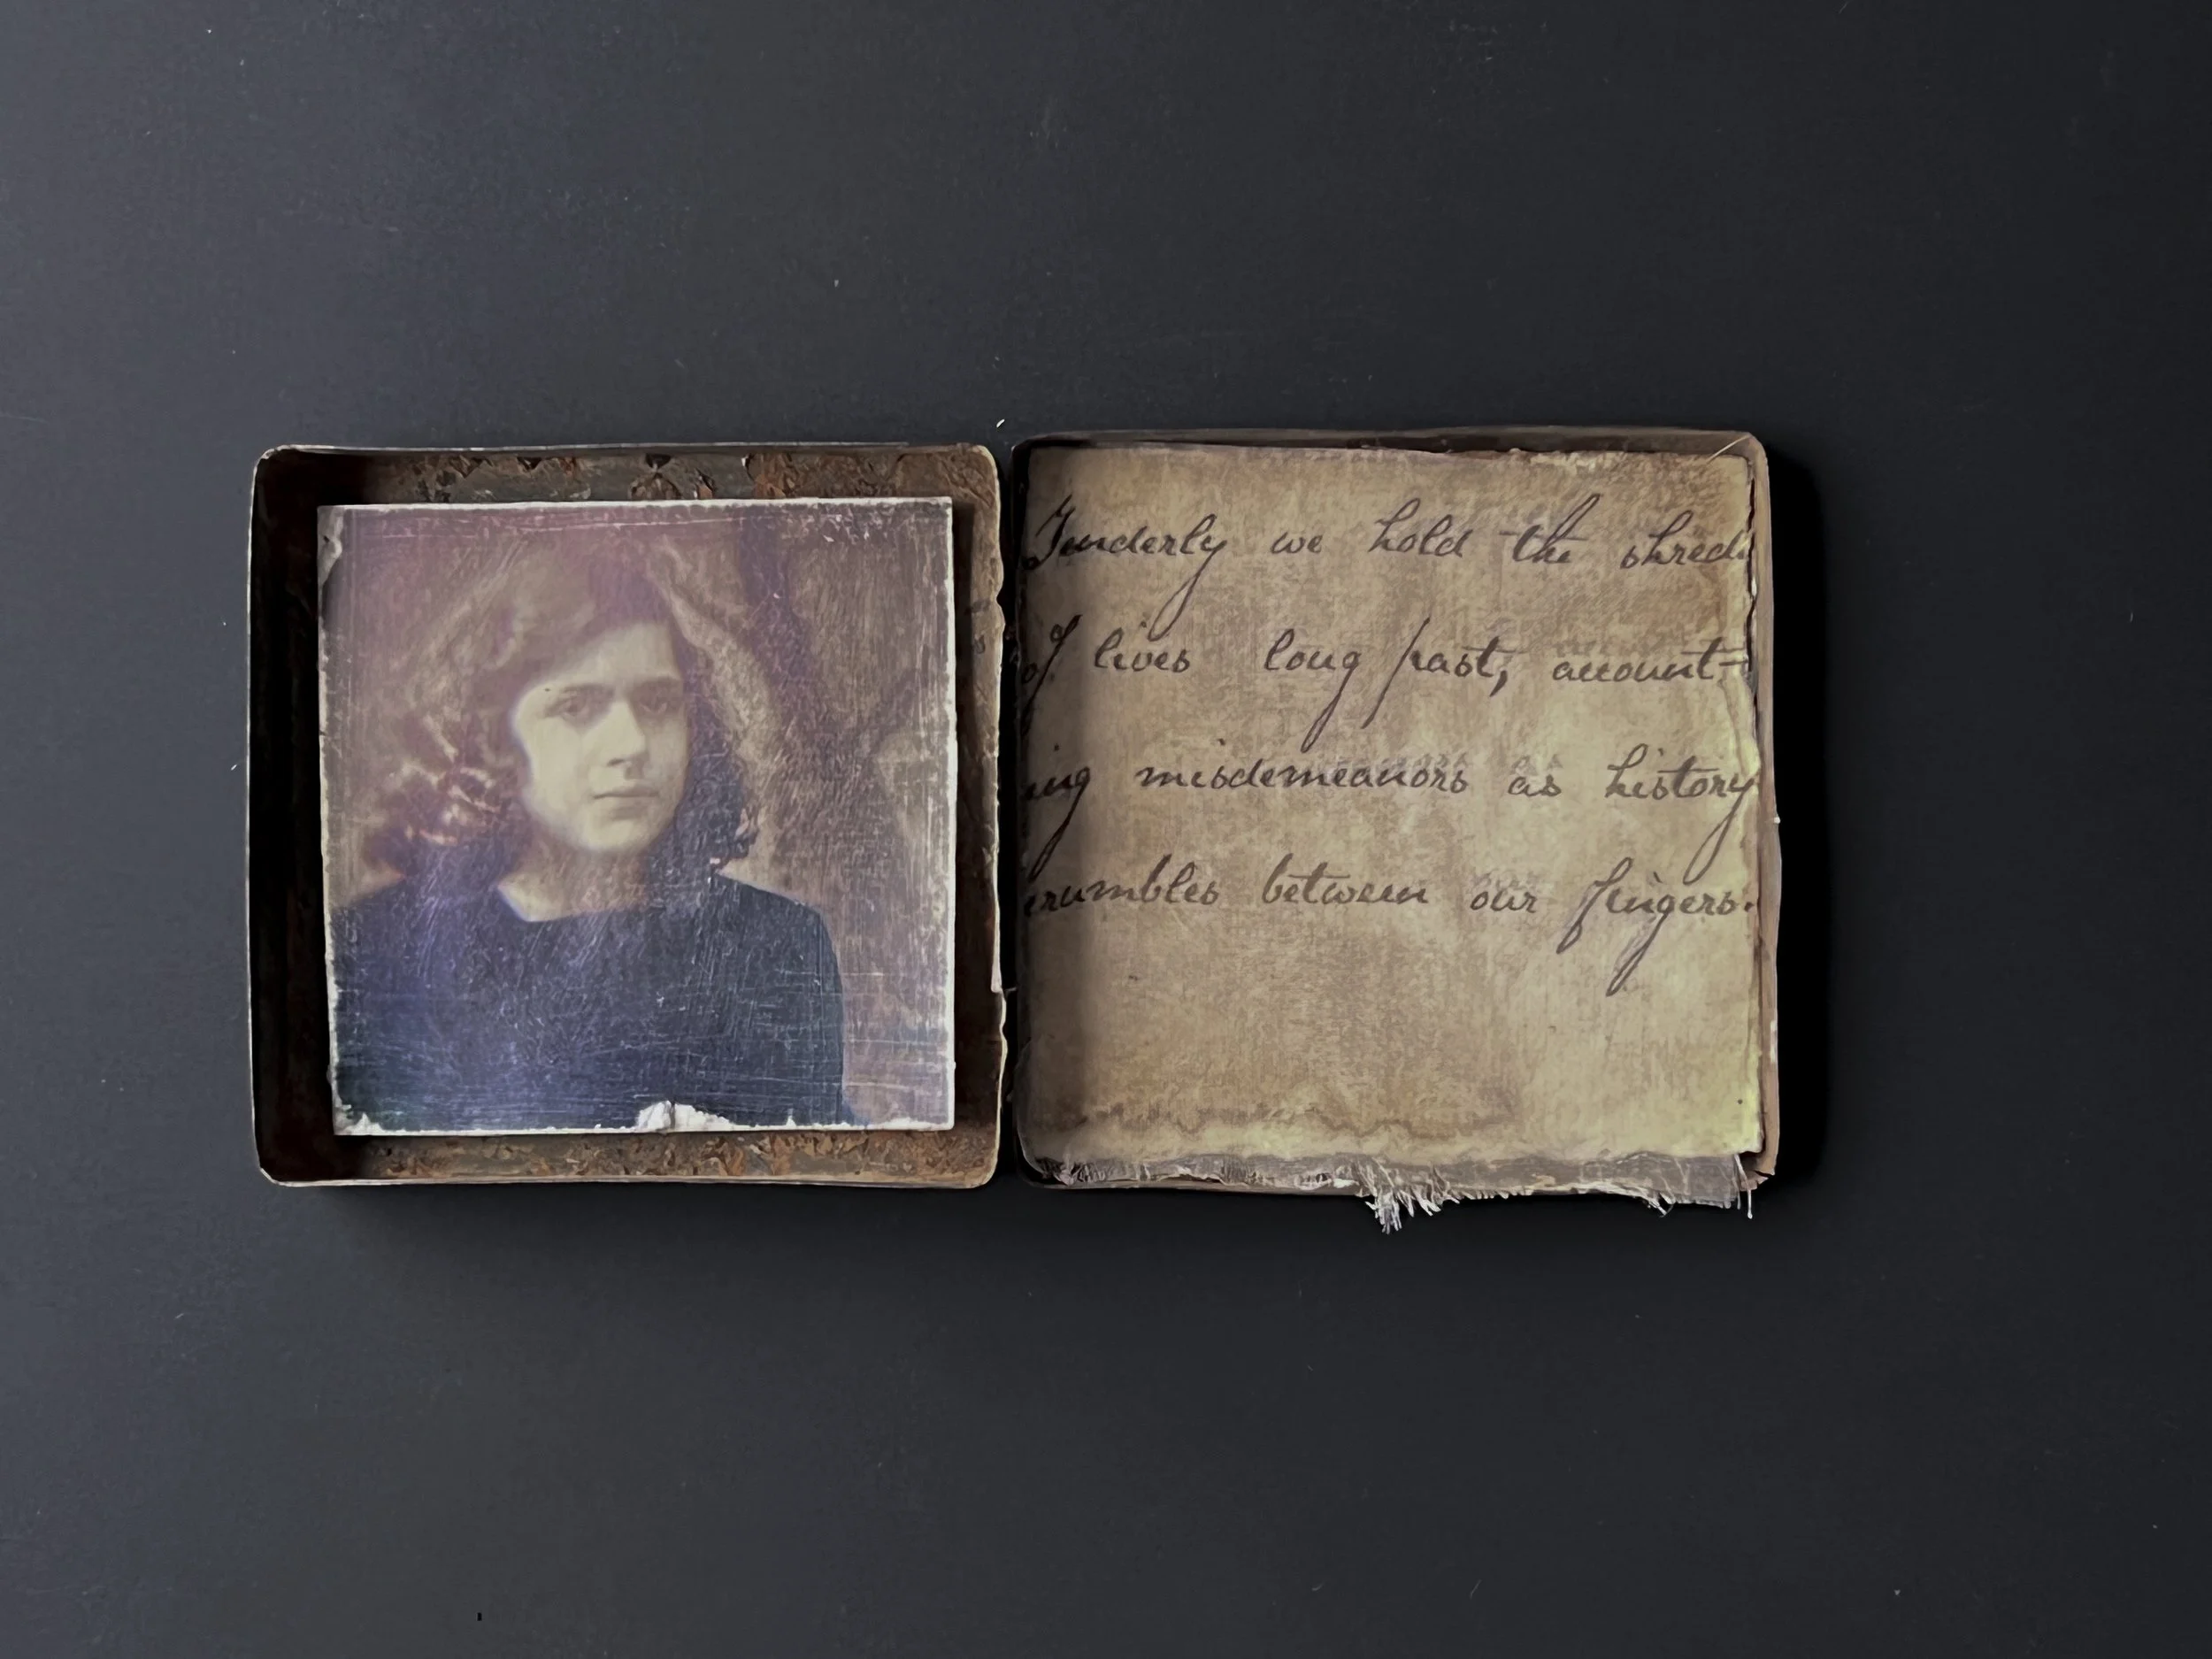 Tenderly we hold the shreds
of lives long past, account-
ing misdemeanors as history
crumbles between our fingers.